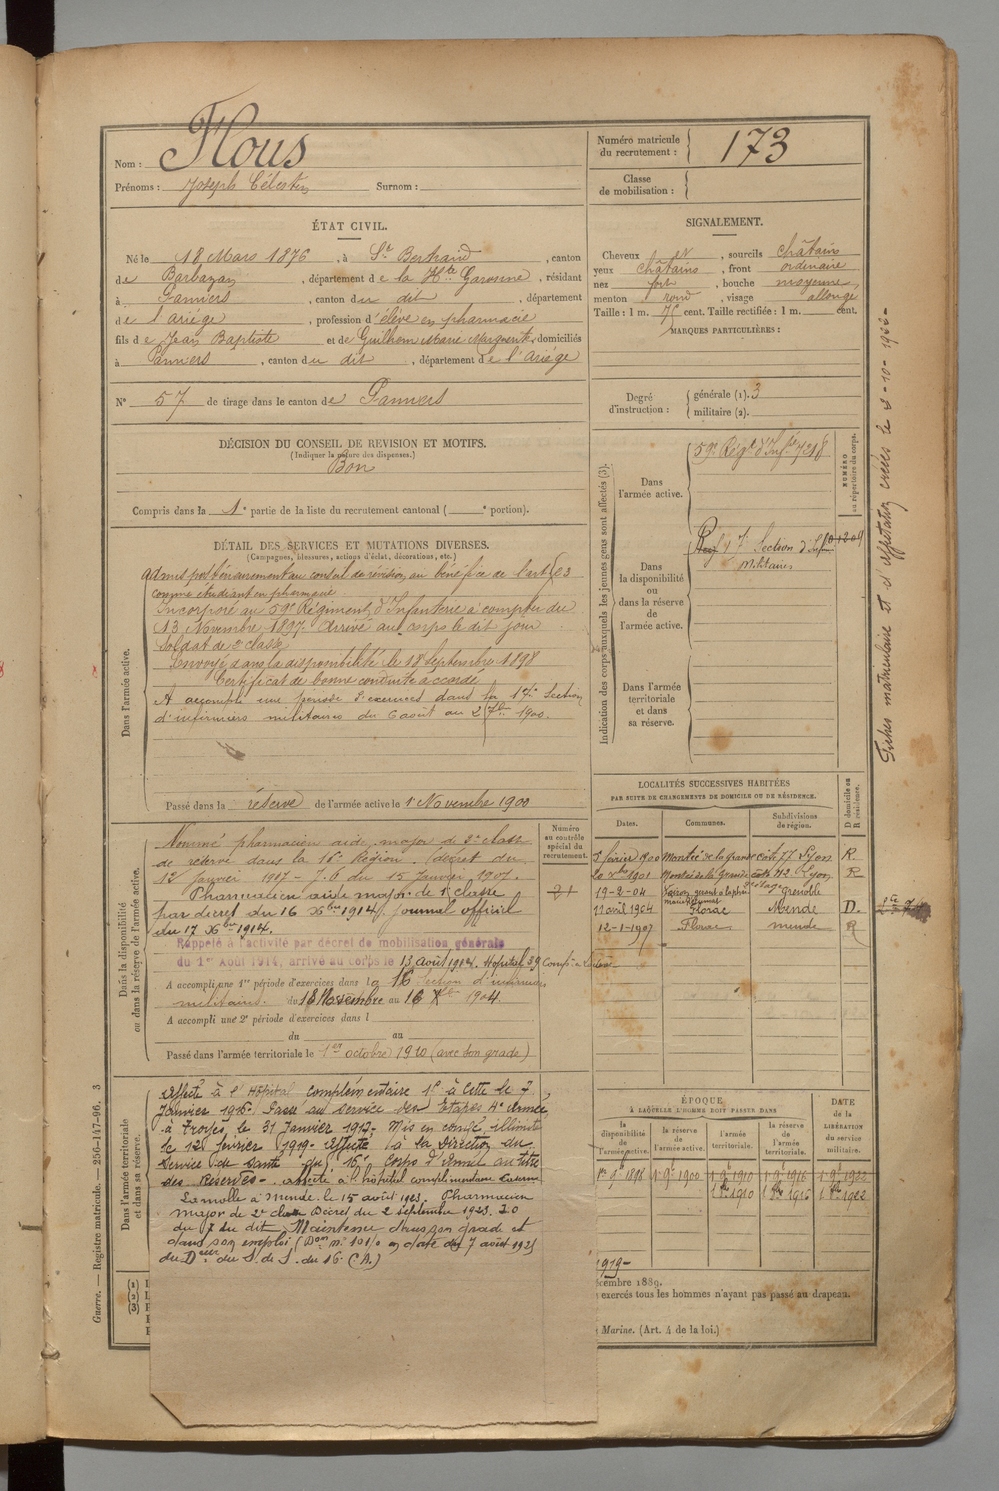 Nom : Flous
Prénoms : Joseph Célestin Surnom :
Numéro matricule du recrutement : 173
Classe de mobilisation :
ÉTAT CIVIL.
Né le 18 Mars 1876, à St Bertrand, canton
de Barbazan, département de la Hte Garonne, résidant
à Pamiers, canton du dit, département
de l'Ariège, profession d'élève en pharmacie
fils de Jean Baptiste et de Guilhem Marie Marguerite, domiciliés
à Pamiers, canton du dit, département de l'Ariège
N° 57 de tirage dans le canton de Pamiers
SIGNALEMENT.
Cheveux N, sourcils châtains
yeux châtains, front ordinaire
nez fort, bouche moyenne,
menton rond, visage allongé
Taille : 1 m. 75 cent. Taille rectifiée : 1 m. cent.
MARQUES PARTICULIÈRES :
Degré d'instruction : générale (1). 3
militaire (2).
DÉCISION DU CONSEIL DE REVISION ET MOTIFS.
(Indiquer la nature des dispenses.)
Bon
Compris dans la 1e partie de la liste du recrutement cantonal ( e portion).
DÉTAIL DES SERVICES ET MUTATIONS DIVERSES.
(Campagnes, blessures, actions d'éclat, décorations, etc.)
Dans l'armée active.
admis postérieurement au conseil de révision, au bénéfice de l'art 23
comme étudiant en pharmacie
Incorporé au 59e Régiment d'Infanterie à compter du
13 Novembre 1897. Arrivé au corps le dit jour
Soldat de 2e classe
Envoyé dans la disponibilité le 18 Septembre 1898
Certificat de bonne conduite accordé
A accompli une période d'exercices dans la 17e Section
d'infirmiers militaires du 6 août au 2 7bre 1900.
Passé dans la réserve de l'armée active le 1 Novembre 1900
Indication des corps auxquels les jeunes gens sont affectés (3).
NUMÉRO au répertoire du corps.
Dans l'armée active.
59e Régt d'Infie 7218
Dans la disponibilité ou dans la réserve de l'armée active.
17e Section d'Infirm
Militaires
Dans l'armée territoriale et dans sa réserve.
Fiches matriculaire et d'affectation créées le
Dans la disponibilité ou dans la réserve de l'armée active.
Numéro au contrôle spécial du recrutement.
Nommé pharmacien aide major de 2e classe
de réserve dans la 16e Région. (décret du
12 Janvier 1907 - J. O du 15 Janvier 1907.
Pharmacien aide major de 1e classe
par décret du 16 Xbre 1914, journal officiel
du 17 Xbre 1914.
Rappelé à l'activité par décret de mobilisation générale
du 1er Août 1914, arrivé au corps le 13 août 1914. Hopital 39
A accompli une 1re période d'exercices dans la 16 Section d'infirmiers
militaires. du 18 Novembre au 16 Xbre 1904.
A accompli une 2e période d'exercices dans l
du au
Passé dans l'armée territoriale le 1er octobre 1910 (avec son grade)
LOCALITÉS SUCCESSIVES HABITÉES
PAR SUITE DE CHANGEMENTS DE DOMICILE OU DE RÉSIDENCE.
Dates. Communes. Subdivisions de région. D domicile ou R résidence.
février 1900 Montée de la Grande côte 77 Lyon R.
1901 Montée de la Grande côte Lyon R
19-2-04 Grenoble
11 avril 1904 Florac Mende D.
12-1-1907 Florac mende R
Dans l'armée territoriale et dans sa réserve.
affecté à l'Hôpital complémentaire à Cette le 7
Janvier 1916. Passé au service des Etapes 4e Armée,
à Troyes, le 31 Janvier 1917. Mis en congé illimité
le 12 février 1919. affecté à la Direction du
Service de santé du 16e Corps d'Armée au titre
des Réserves. affecté à l'hôpital complémentaire caserne
Lamolle à Mende. le 15 août 1923. Pharmacien
major de 2e classe Décret du 2 septembre 1923. J.O
du 7 du dit, Maintenu dans son grade et
dans son emploi
du Dteur du S. de S. du 16 C.A.)
ÉPOQUE
À LAQUELLE L'HOMME DOIT PASSER DANS
DATE de la LIBÉRATION du service militaire.
la disponibilité de l'armée active. la réserve de l'armée active. l'armée territoriale. la réserve de l'armée territoriale.
1898 1900 1910 1916 1922
1910 1916 1922
1919-
cembre 1889.
exercés tous les hommes n'ayant pas passé au drapeau.
Marine. (Art. 4 de la loi.)
(1)
(2)
(3)
Guerre. — Registre matricule. — 256-147-96. 3